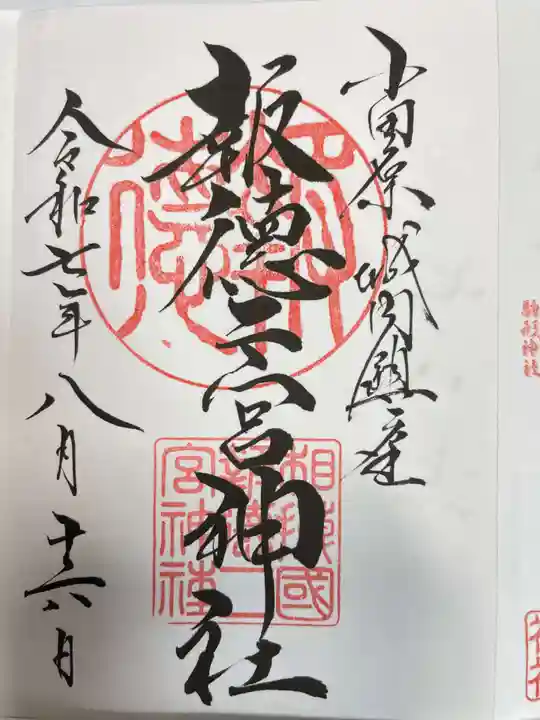 小田原城内鎮座
報徳二宮神社
令和七年八月十六日
相模國
報徳二
宮神社
駒形神社